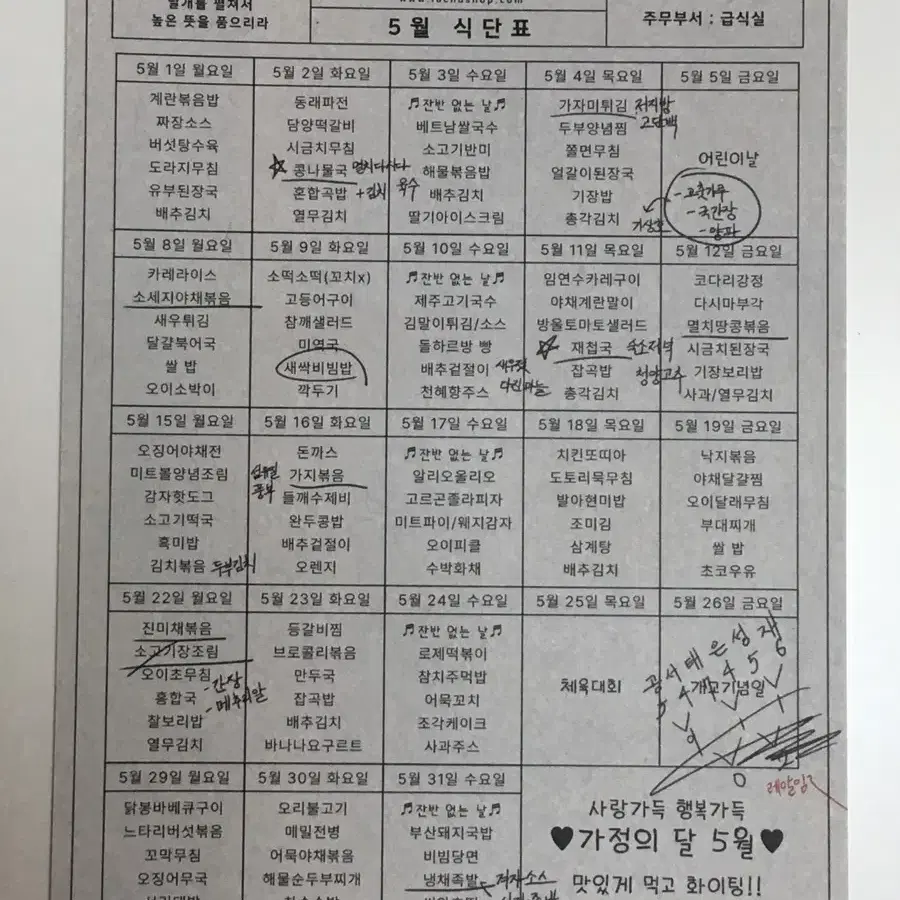 날개를 펼쳐서
높은 뜻을 품으리라
5월 식단표
주무부서 : 급식실
5월 1일 월요일
계란볶음밥
짜장소스
버섯탕수육
도라지무침
유부된장국
배추김치
5월 2일 화요일
동래파전
담양떡갈비
시금치무침
☆ 콩나물국 멸치다시다
혼합곡밥 +김치 육수
열무김치
5월 3일 수요일
♬잔반 없는 날♬
베트남쌀국수
소고기반미
해물볶음밥
배추김치
딸기아이스크림
5월 4일 목요일
가자미튀김 저지방
고단백
두부양념찜
쫄면무침
얼갈이된장국
기장밥
총각김치
5월 5일 금요일
어린이날
- 고춧가루
- 국간장
- 양파
5월 8일 월요일
카레라이스
소세지야채볶음
새우튀김
달걀북어국
쌀 밥
오이소박이
5월 9일 화요일
소떡소떡(꼬치x)
고등어구이
참깨샐러드
미역국
새싹비빔밥
깍두기
5월 10일 수요일
♬잔반 없는 날♬
제주고기국수
김말이튀김/소스
돌하르방 빵
배추겉절이 새우젓
다진마늘
천혜향주스
5월 11일 목요일
임연수카레구이
야채계란말이
방울토마토샐러드
☆ 재첩국
잡곡밥 청양고추
총각김치
5월 12일 금요일
코다리강정
다시마부각
멸치땅콩볶음
시금치된장국
기장보리밥
사과/열무김치
5월 15일 월요일
오징어야채전
미트볼양념조림
감자핫도그
소고기떡국
흑미밥
김치볶음 두부김치
5월 16일 화요일
돈까스
섬유질
풍부
가지볶음
들깨수제비
완두콩밥
배추겉절이
오렌지
5월 17일 수요일
♬잔반 없는 날♬
알리오올리오
고르곤졸라피자
미트파이/웨지감자
오이피클
수박화채
5월 18일 목요일
치킨또띠아
도토리묵무침
발아현미밥
조미김
삼계탕
배추김치
5월 19일 금요일
낙지볶음
야채달걀찜
오이달래무침
부대찌개
쌀 밥
초코우유
5월 22일 월요일
진미채볶음
소고기장조림
오이초무침
홍합국
- 간장
- 메추리알
찰보리밥
열무김치
5월 23일 화요일
등갈비찜
브로콜리볶음
만두국
잡곡밥
배추김치
바나나요구르트
5월 24일 수요일
♬잔반 없는 날♬
로제떡볶이
참치주먹밥
어묵꼬치
조각케이크
사과주스
5월 25일 목요일
체육대회
5월 26일 금요일
공서태은성쟁
개교기념일
5월 29일 월요일
닭봉바베큐구이
느타리버섯볶음
꼬막무침
오징어무국
5월 30일 화요일
오리불고기
메밀전병
어묵야채볶음
해물순두부찌개
5월 31일 수요일
♬잔반 없는 날♬
부산돼지국밥
비빔당면
냉채족발 겨자소스
사랑가득 행복가득
♥가정의 달 5월♥
맛있게 먹고 화이팅!!